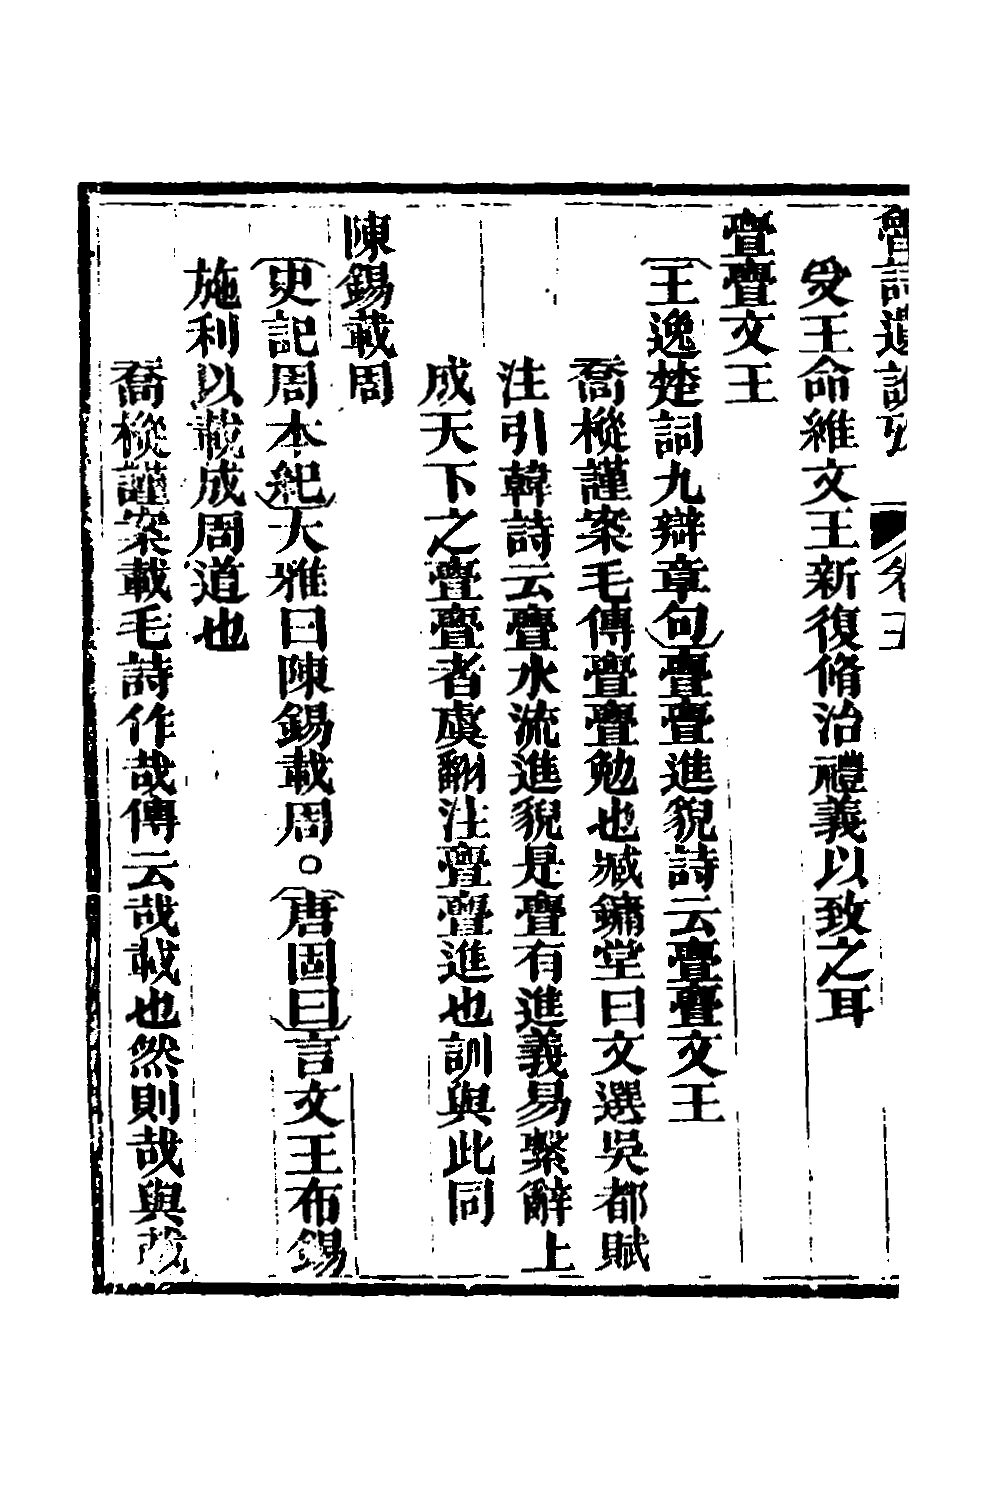 魯詩遺說攷　卷
受王命維文王新復脩治禮義以致之耳
亹亹文王
王逸楚詞九辯章句亹亹進貌詩云亹亹文王
喬樅謹案毛傳亹亹勉也臧鏞堂曰文選吳都賦
注引韓詩云亹水流進貌是亹有進義易繫辭上
成天下之亹亹者虞翻注亹亹進也訓與此同
陳錫載周
史記周本紀大雅曰陳錫載周○唐固曰言文王布錫
施利以載成周道也
喬樅謹案載毛詩作哉傳云哉載也然則哉與載